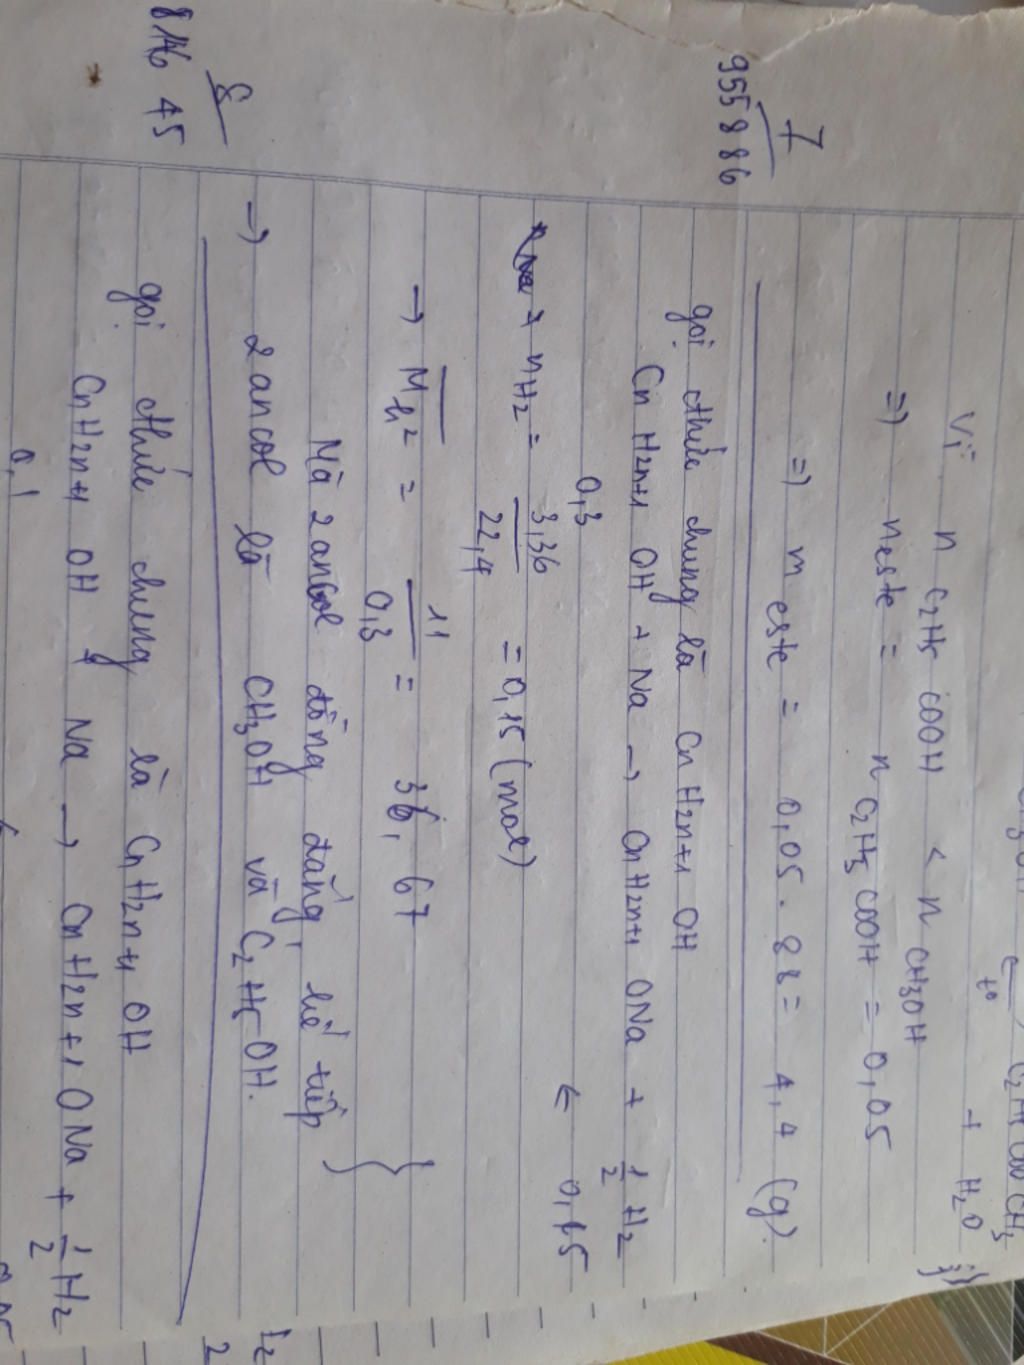 CH3OH ⇌ t° C2H5COOCH3 + H2O
Vì n C2H5COOH < n CH3OH
=> neste = n C2H5COOH = 0,05
=> m este = 0,05 . 88 = 4,4 (g).
7
9558886
gọi thức chung là CnH2n+1OH
CnH2n+1OH + Na → CnH2n+1ONa + 1/2 H2
0,3 ← 0,15
+ nH2 = 3,36/22,4 = 0,15 (mol)
→ M = 11/0,3 = 36,67
Mà 2 ancol đồng đẳng, kế tiếp
→ 2 ancol là CH3OH và C2H5OH.
8
8146 45
gọi thức chung là CnH2n+1OH
CnH2n+1OH + Na → CnH2n+1ONa + 1/2 H2
0,1